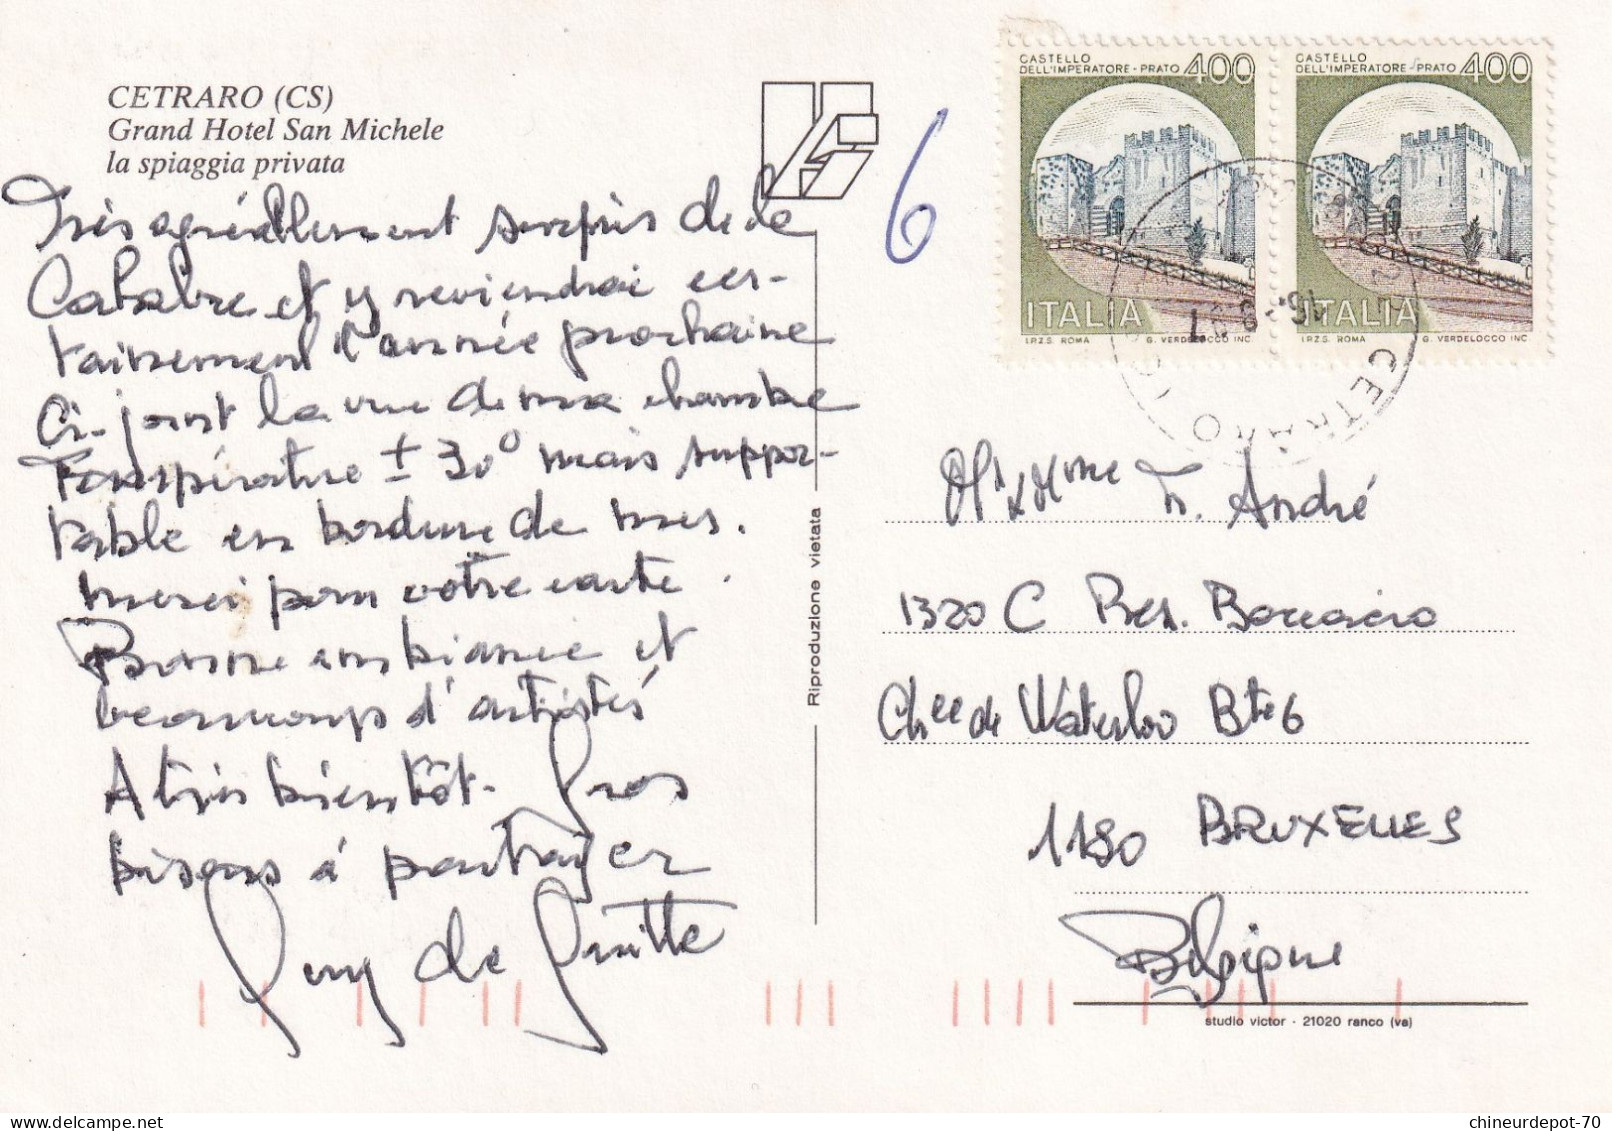 CETRARO (CS)
Grand Hotel San Michele
la spiaggia privata
Très agréablement surpris de la
Calabre et y reviendrai cer-
tainement l'année prochaine
Ci-joint la vue de ma chambre
Transpirature ± 30° mais suppor-
table en bordure de mer.
merci pour votre carte.
Bonne ambiance et
beaucoup d'
A très bientôt. Gros
bisous à partager
Guy de
6
CASTELLO
DELL'IMPERATORE - PRATO 400
ITALIA
I.P.Z.S. ROMA G. VERDELOCCO INC
CASTELLO
DELL'IMPERATORE - PRATO 400
ITALIA
I.P.Z.S. ROMA G. VERDELOCCO INC
CETRARO
Riproduzione vietata
Mr x Mme F. André
1320 C Res. Boccacio
Chee de Waterloo Bte 6
1180 BRUXELLES
Belgique
studio victor - 21020 ranco (va)
chineurdepot-70